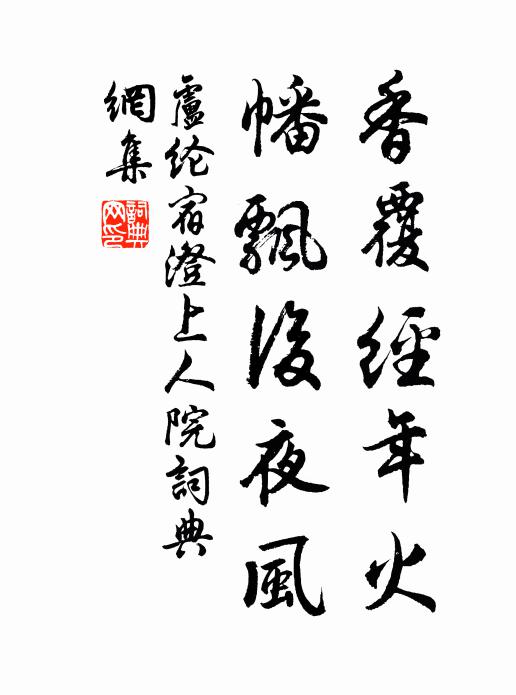 香覆經年火
幡飄後夜風
盧纶宿澄上人院詞典
網集
詞典
网印